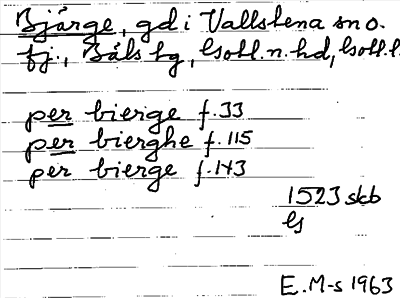 Bjärge, gd i Vallstena sn o.
fj., Bäls tg, Gotl.n.hd, Gotl.l.
per bierge f.33
per bierghe f.115
per bierge f.143
1523 skb
ls
E.M-s 1963